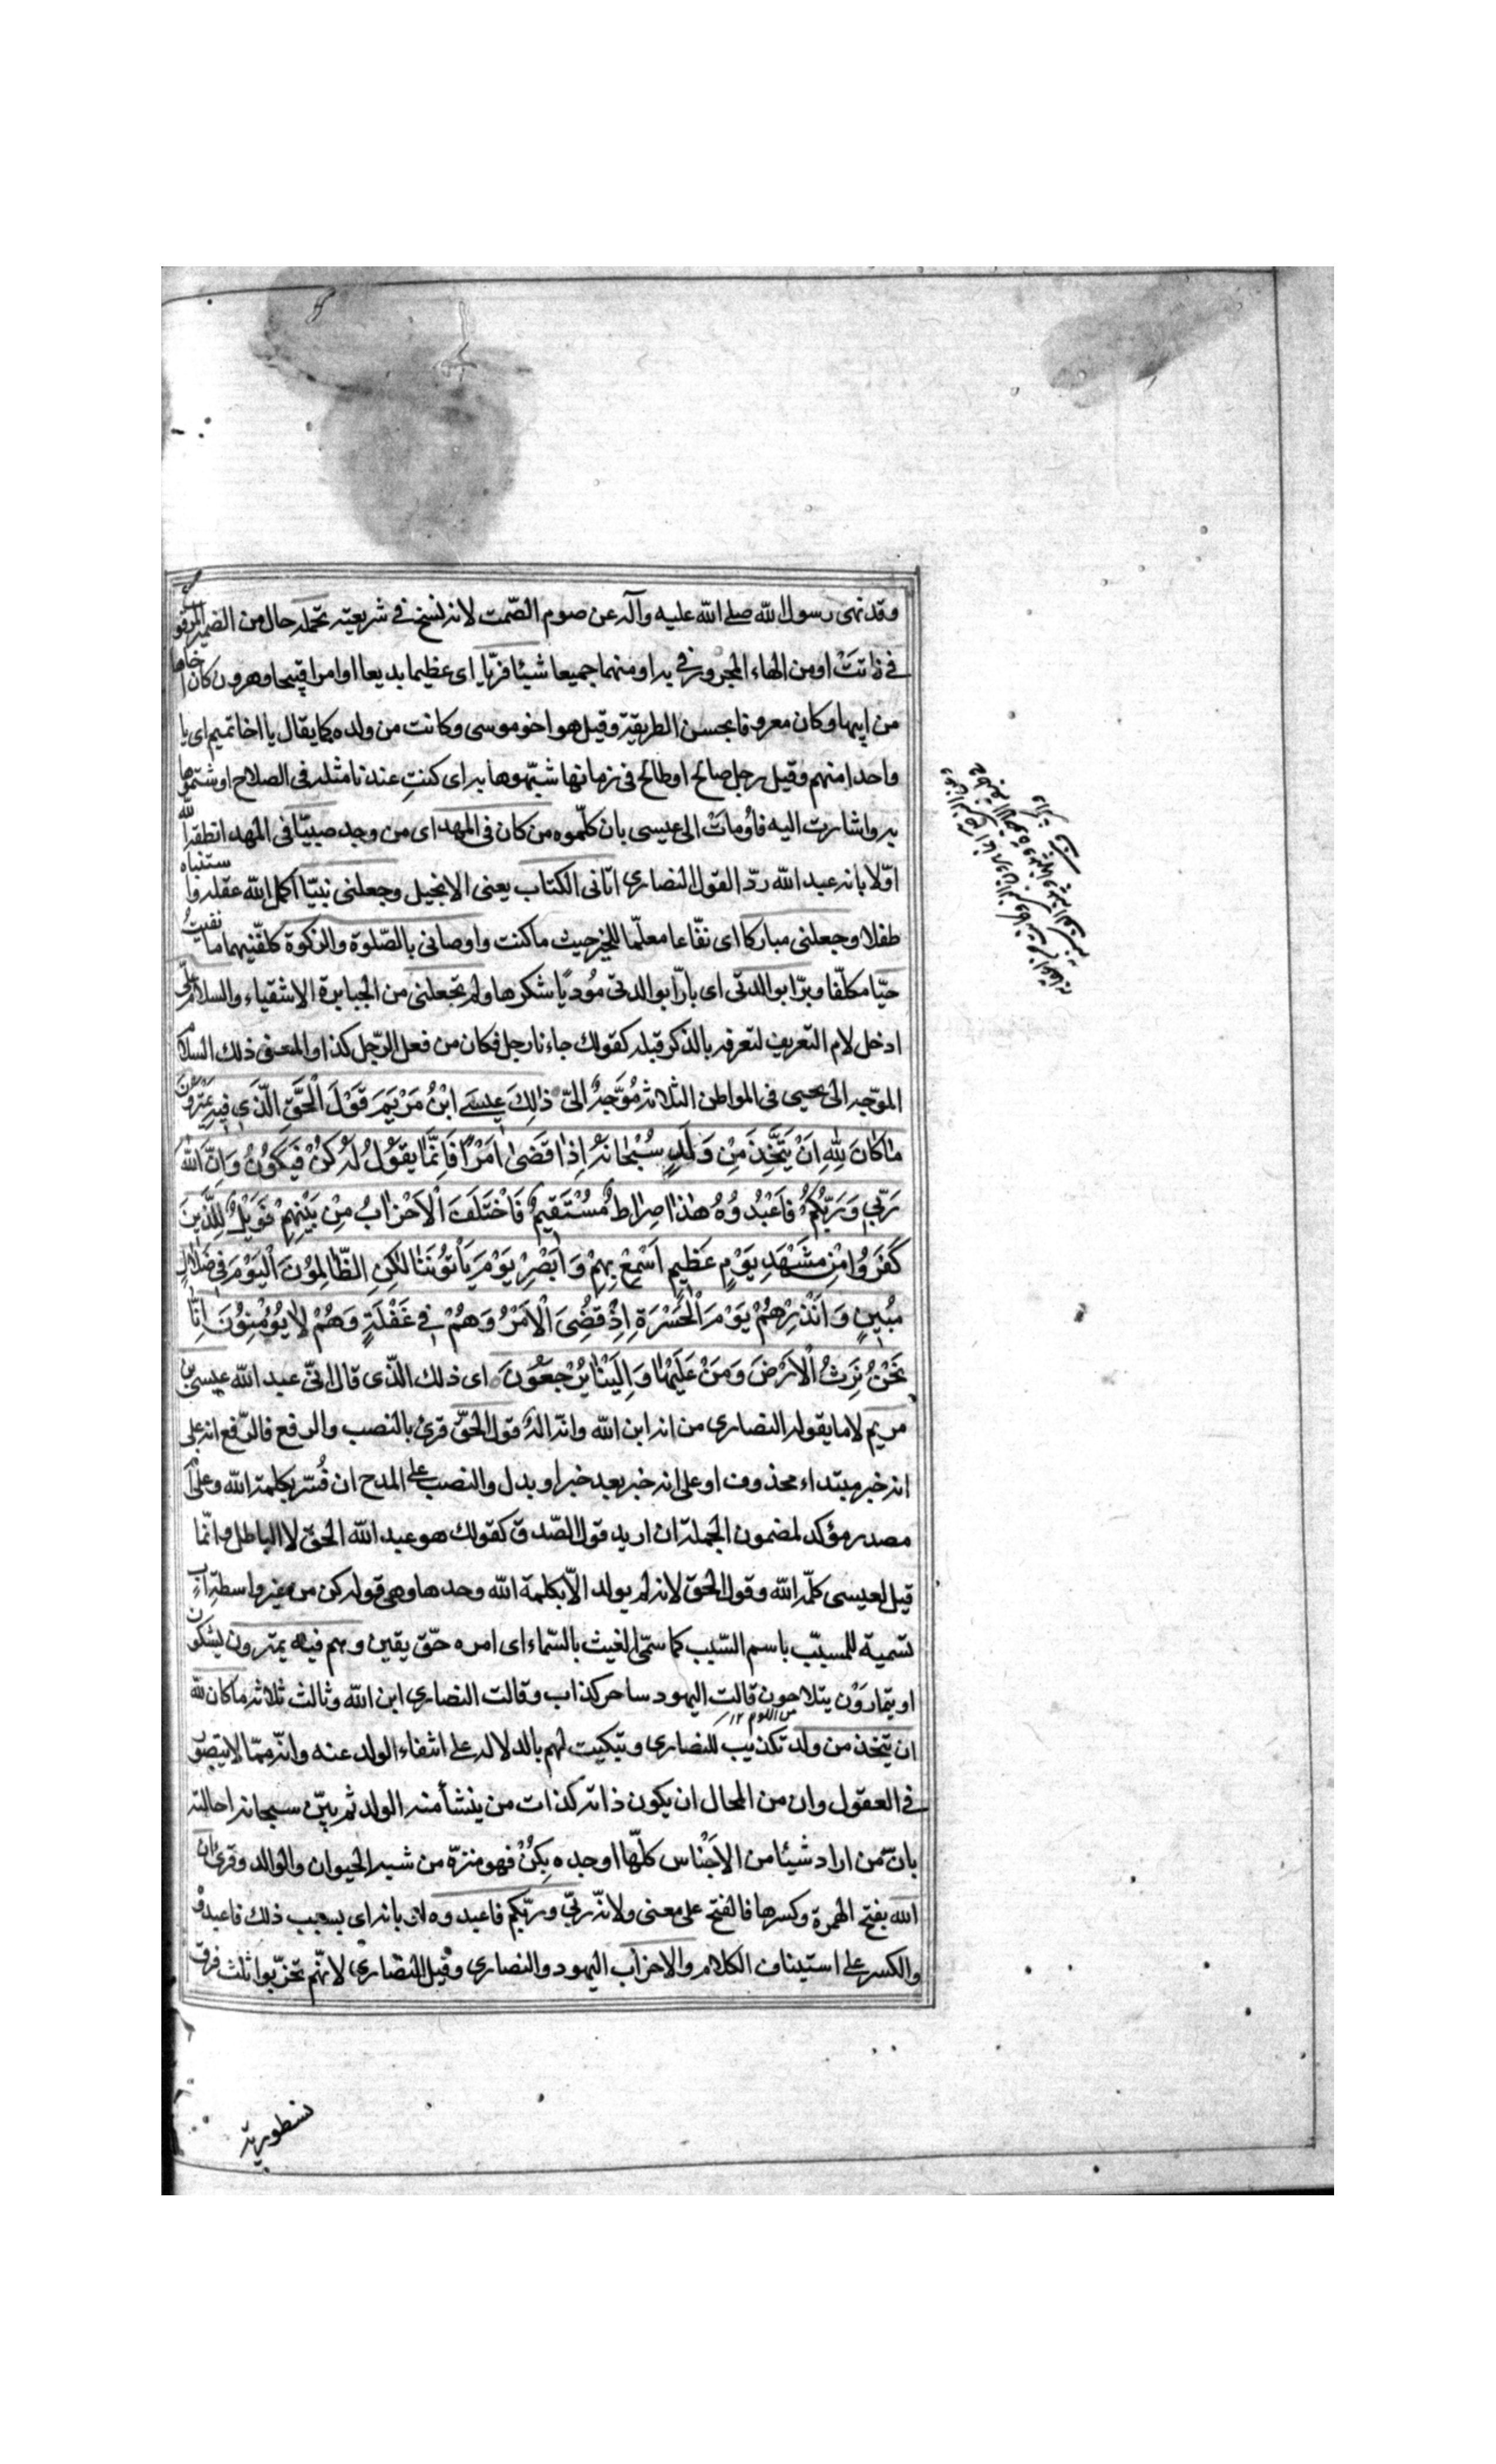 وقد نهى رسول الله صلى الله عليه وآله عن صوم الصّمت لانه نسخ فى شريعته تحمله حال من الضمير المرفوع
فى فاتت او من الهاء المجرور فى به او منهما جميعا شيئا فريّا اى عظيما بديعا او امرا قبيحا وهرون كان اخاها
من ابيها وكان معروفا بحسن الطريقة وقيل هو اخو موسى وكانت من ولده كما يقال يا اخا تميم اى يا
واحدا منهم وقيل رجل صالح او طالح فى زمانها شبّهوها به اى كنتِ عندنا مثله فى الصلاح او شتموها
به واشارت اليه فأومأتْ الى عيسى بان كلّموه من كان فى المهد اى من وجد صبيّا فى المهد انطقه الله
اوّلا بانه عبد الله ردّ القول النصارى اتانى الكتاب يعنى الانجيل وجعلنى نبيّا اكمل الله عقله واستنباه
طفلا وجعلنى مباركا اى نفّاعا معلّما للخير حيث ما كنت واوصانى بالصّلوة والزكوة كلّفنيهما ما بقيتُ
حيّا مكلّفا وبرّا بوالدتى اى بارّا بوالدتى مؤديًا شكرها ولم تجعلنى من الجبابرة الاشقياء والسلام علىّ
ادخل لام التعريف لتعرفه بالذكر قبله كقولك جاءنا رجل فكان من فعل الرّجل كذا والمعنى ذلك السلام
الموّجه الى يحيى فى المواطن الثلاثة مُوَجَّهٌ الىّ ذٰلِكَ عِيسَى ابْنُ مَرْيَمَ قَوْلَ الْحَقِّ الَّذِى فِيهِ يَمْتَرُونَ
مٰا كٰانَ لِلّٰهِ اَنْ يَتَّخِذَ مِنْ وَلَدٍ سُبْحٰانَهُ اِذٰا قَضىٰ اَمْرًا فَاِنَّمٰا يَقُولُ لَهُ كُنْ فَيَكُونُ وَاِنَّ اللّٰهَ
رَبّى وَرَبُّكُمْ فَاعْبُدُوهُ هٰذٰا صِرٰاطٌ مُسْتَقيمٌ فَاخْتَلَفَ الْاَحْزٰابُ مِنْ بَيْنِهِمْ فَوَيْلٌ لِلَّذينَ
كَفَرُوا مِنْ مَشْهَدِ يَوْمٍ عَظيمٍ اَسْمِعْ بِهِمْ وَاَبْصِرْ يَوْمَ يَاْتُونَنٰا لٰكِنِ الظّٰالِمُونَ الْيَوْمَ فى ضَلٰالٍ
مُبينٍ وَاَنْذِرْهُمْ يَوْمَ الْحَسْرَةِ اِذْ قُضِىَ الْاَمْرُ وَهُمْ فى غَفْلَةٍ وَهُمْ لٰا يُؤْمِنُونَ اِنّٰا
نَحْنُ نَرِثُ الْاَرْضَ وَمَنْ عَلَيْهٰا وَاِلَيْنٰا يُرْجَعُونَ اى ذلك الذّى قال انّى عبد الله عيسى بن
مريم لا ما يقوله النصارى من انه ابن الله وانّه اله قول الحقّ قرئ بالنصب والرفع فالرّفع انه على
انه خبر مبتداء محذوف او على انه خبر بعد خبر او بدل والنصب على المدح ان فُسّر بكلمة الله وعلى انه
مصدر مؤكد لمضمون الجملة ان اريد قول الصّدق كقولك هو عبد الله الحقّ لا الباطل وانّما
قيل لعيسى كلمة الله وقول الحق لانه لم يولد الّا بكلمة الله وحدها وهى قوله كن من غير واسطة اب
تسمية للمسبّب باسم السّبب كما سمّى الغيث بالسّماء اى امره حّق يقين وهم فيه يمترون يشكون
او يتمارَوْن يتلاحون قالت اليهود ساحر كذاب وقالت النصارى ابن الله وثالث ثلاثة ما كان لله
من اللوم ١٢
ان يتخذ من ولد تكذيب للنصارى وتبكيت لهم بالدلالة على انتفاء الولد عنه وانّه ممّا لا يتصوّر
فى العقول وان من المحال ان يكون ذاته كذات من ينشأ منه الولد ثم بيّن سبحانه احالته
بانّ من اراد شيئا من الاجْناس كلّها اوجده بِكُنْ فهو منزّه من شبه الحيوان والوالد وقرئ ان
الله بفتح الهمزة وكسرها فالفتح على معنى ولانّه ربّى وربّكم فاعبدوه او بانه اى بسبب ذلك فاعبدوه
والكسر على استيناف الكلام والاحزاب اليهود والنصارى وقيل النصارى لانّهم تحزّبوا ثلث فرق
نسطورية